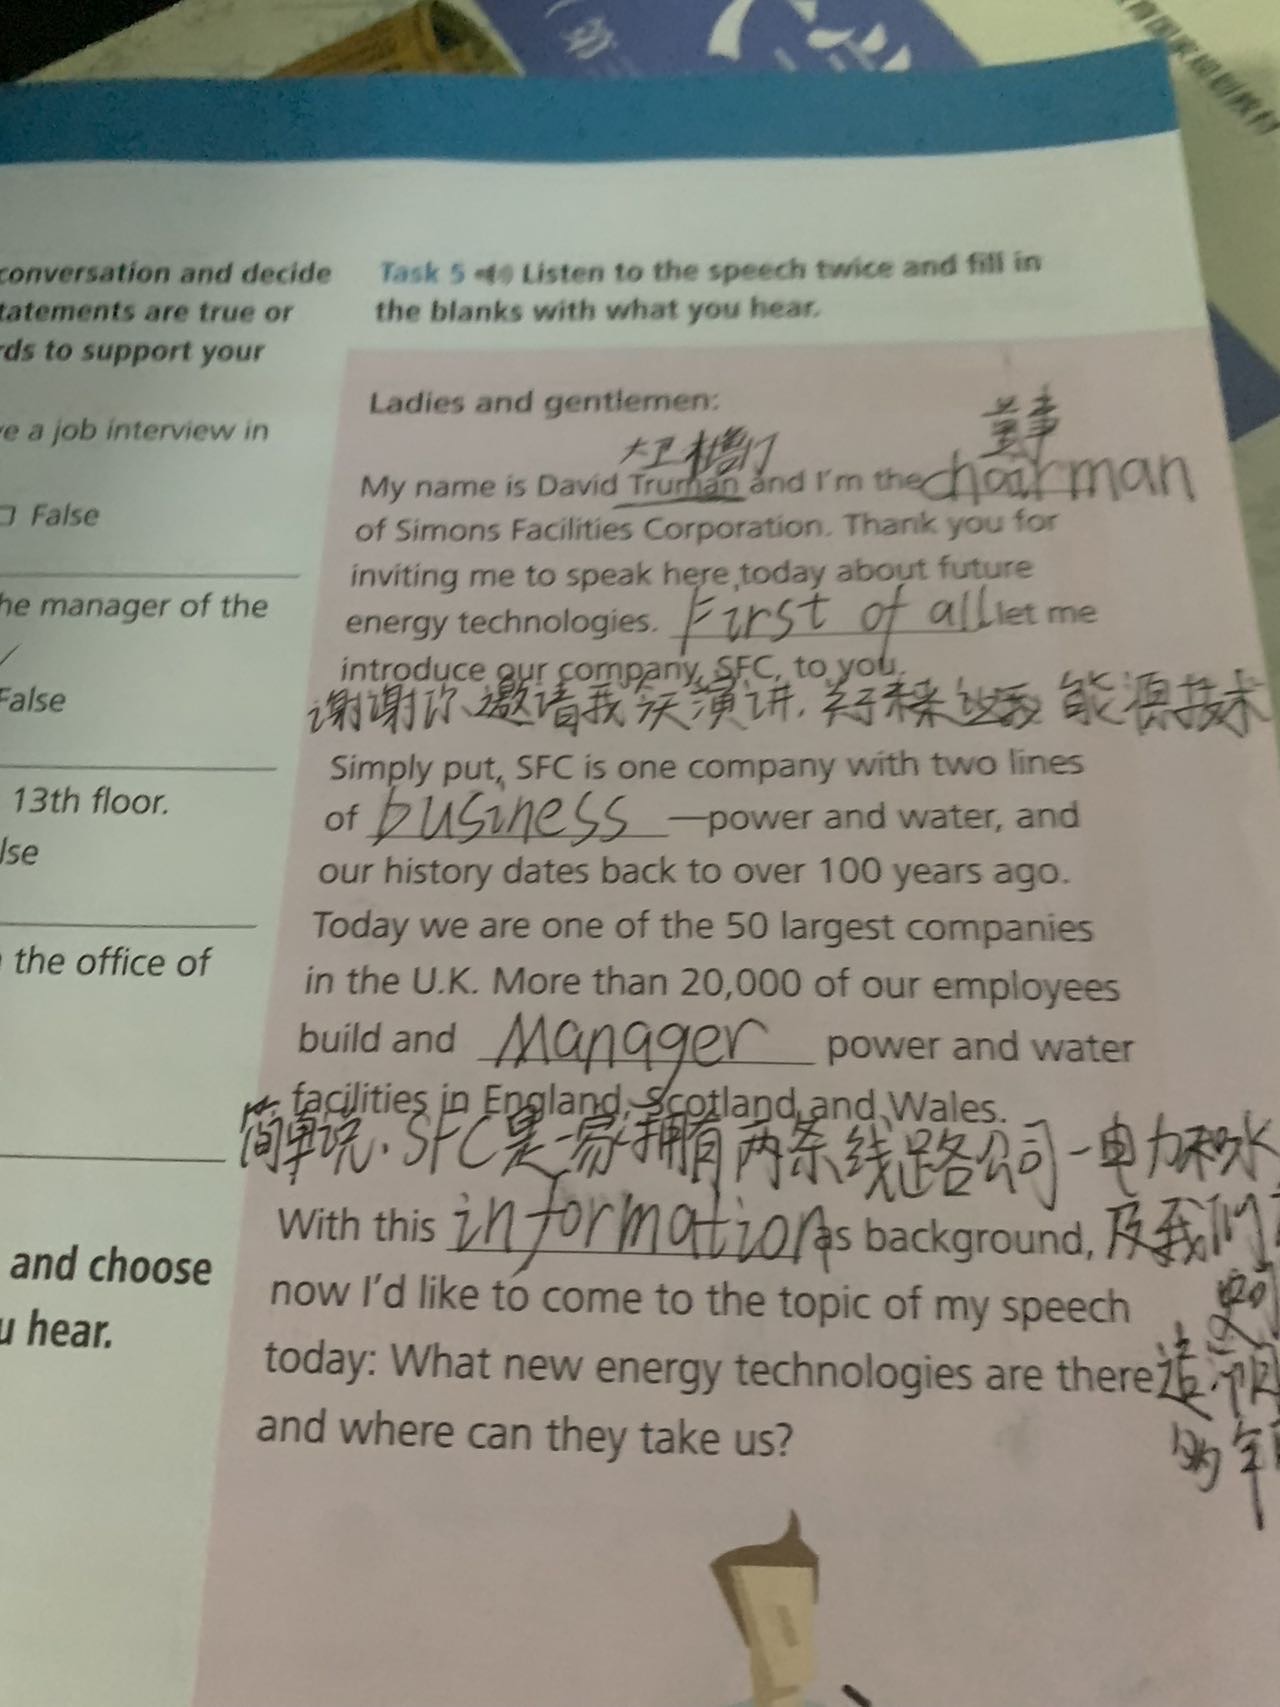 (第
育国家规划教材
conversation and decide
tatements are true or
rds to support your
e a job interview in
False
he manager of the
False
13th floor.
lse
the office of
and choose
u hear.
Task 5 Listen to the speech twice and fill in
the blanks with what you hear.
Ladies and gentlemen:
董事
大卫 杜鲁门
My name is David Truman and I'm the chairman
of Simons Facilities Corporation. Thank you for
inviting me to speak here today about future
energy technologies. First of all let me
introduce our company, SFC, to you.
谢谢你邀请我 演讲. 关于未来 能源技术
Simply put, SFC is one company with two lines
of business —power and water, and
our history dates back to over 100 years ago.
Today we are one of the 50 largest companies
in the U.K. More than 20,000 of our employees
build and Manager power and water
facilities in England, Scotland and Wales.
简单说. SFC是一家拥有两条线路公司-电力和水
With this information as background, 及我们
now I'd like to come to the topic of my speech
today: What new energy technologies are there
and where can they take us?
的年